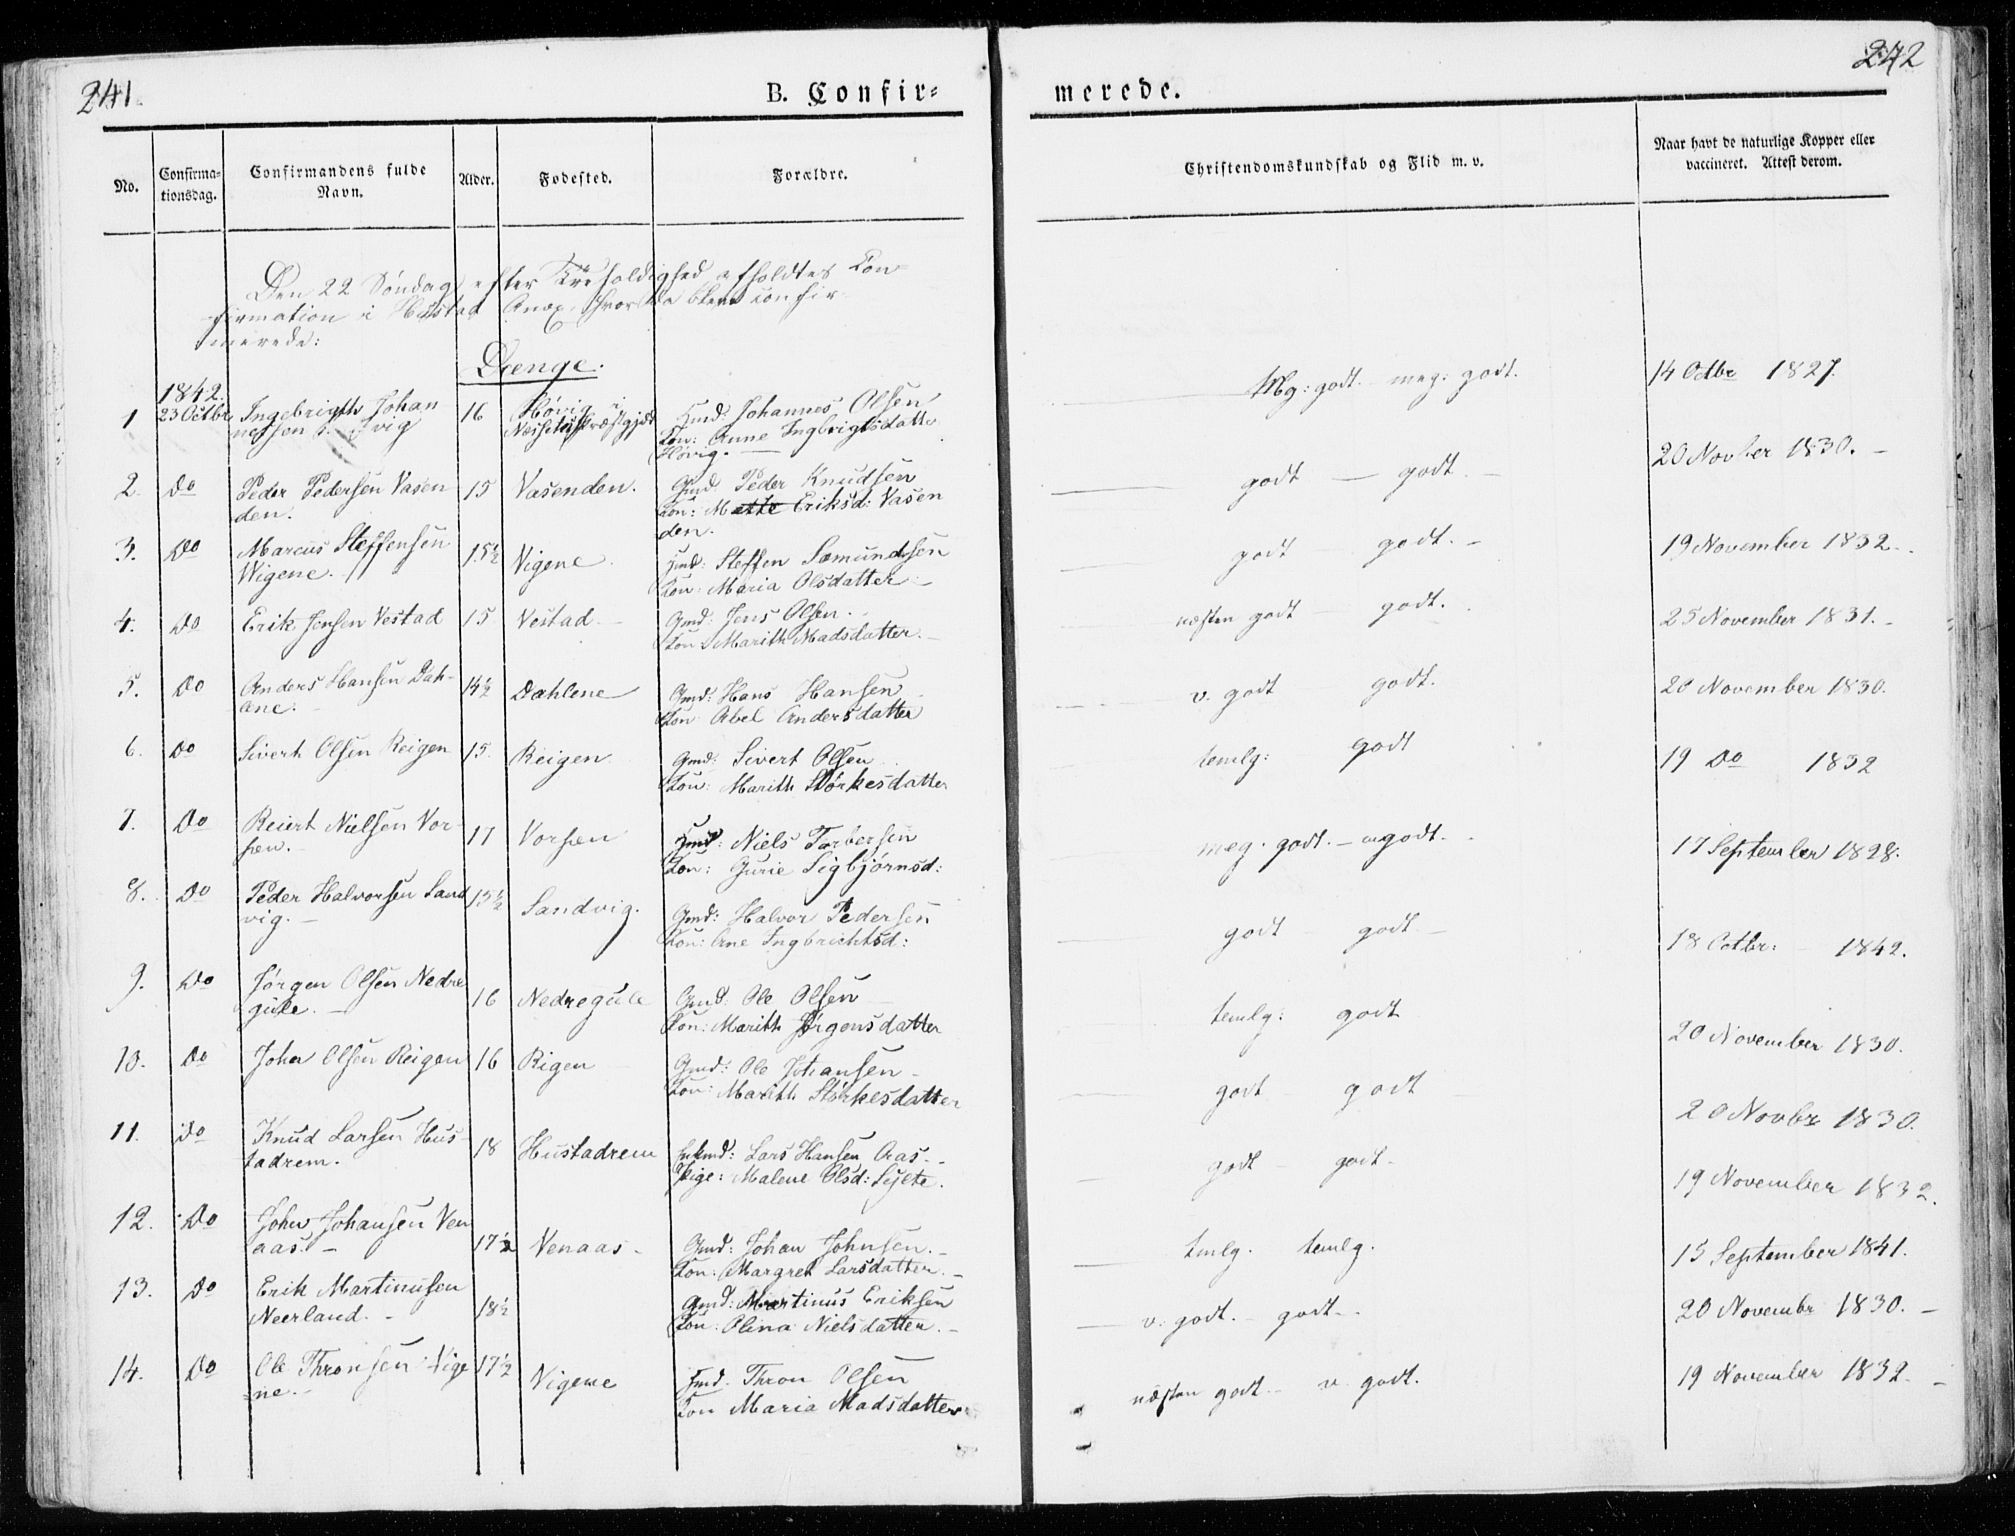 241.
242
B. Confir=
merede.
No.
Confirma-
tionsdag.
Confirmandens fulde
Navn.
Alder.
Fødested.
Forældre.
Christendomskundskab og Flid m. v.
Naar havt de naturlige Kopper eller
vaccineret. Attest derom.
Den 22 Søndag efter Trefoldighed afholdtes Con=
firmation i Hustad Anex, hvor da bleve confir-
merede:
Drenge.
1842.
1 23 Octbr Ingebrigth Johan 16 Høvig i Hmd: Johannes Olsen Mg: godt. - meg: godt. 14 Octbr 1827.
nessen Nessets Præstgjæld Kon: Anne Ingbrigtsdatter
Høvig. -
2. Do Peder Pedersen Vasen 15 Vasenden. Gmd Peder Knudsen godt - godt - 20 Novber 1830. -
den. Kon: Mette Eriksd: Vasen
den.
3. Do Marcus Steffensen 15½ Vigene Hmd: Steffen Sæmundsen godt godt. - 19 November 1832.
Wigene. Kon: Maria Olsdatter -
4. Do Erik Jensen Vestad 15 Vestad - Gmd: Jens Olsen. næsten godt - godt. 25 November 1831. -
Kon: Marith Madsdatter. -
5. Do Anders Hansen Dah- 14½ Dahlene Gmd: Hans Hansen v. godt godt. 20 November 1830.
lene. Kon: Abel Andersdatter
6. Do Sivert Olsen Reigen 15 Reigen Gmd: Sivert Olsen temlg: godt 19 Do 1832
Kon: Marith Størkesdatter
7. Do Reiert Nielsen Vor- 17 Vorsen Hmd: Niels Torbersen meg. godt. - godt. - 17 September 1828.
sen. - Kon: Gurie Sigbjørnsd:
8. Do Peder Halvorsen Sand 15½ Sandvig. Gmd: Halvor Pedersen godt - godt - 18 Octbr: 1842.
vig. - Kon: Ane Ingbrichtsd:
9. Do Jørgen Olsen Nedre 16 Nedregule Gmd: Ole Olsen temlg: godt 20 November 1830.
gule. - Kon: Marith Jørgensdatter
10. Do John Olsen Reigen 16 Rigen Gmd: Ole Johansen - godt godt 20 Novbr 1830.
Kon: Marith Størkesdatter
11. Do Knud Larsen Hus- 18 Hustadrem Lars Hansen Aas. - godt - godt - 19 November 1832.
tadrem. Pige: Malene Olsd: Sylte.
12. Do John Johansen Ven 17½ Venaas - Gmd: Johan Johnsen. - tmlg. temlg. 15 September 1841.
aas. - Kon: Margret Larsdatter. -
13. Do Erik Martinusen 18½ Gmd: Martinus Eriksen v. godt. - godt - 20 Novembr 1830. -
Neerland. - Kon: Olina Nielsdatter. -
14. Do Ole Thronsen Vige 17½ Vigene Hmd. Thron Olsen næsten godt - v. godt. 19 November 1832. -
ne. - Kon Maria Madsdatter